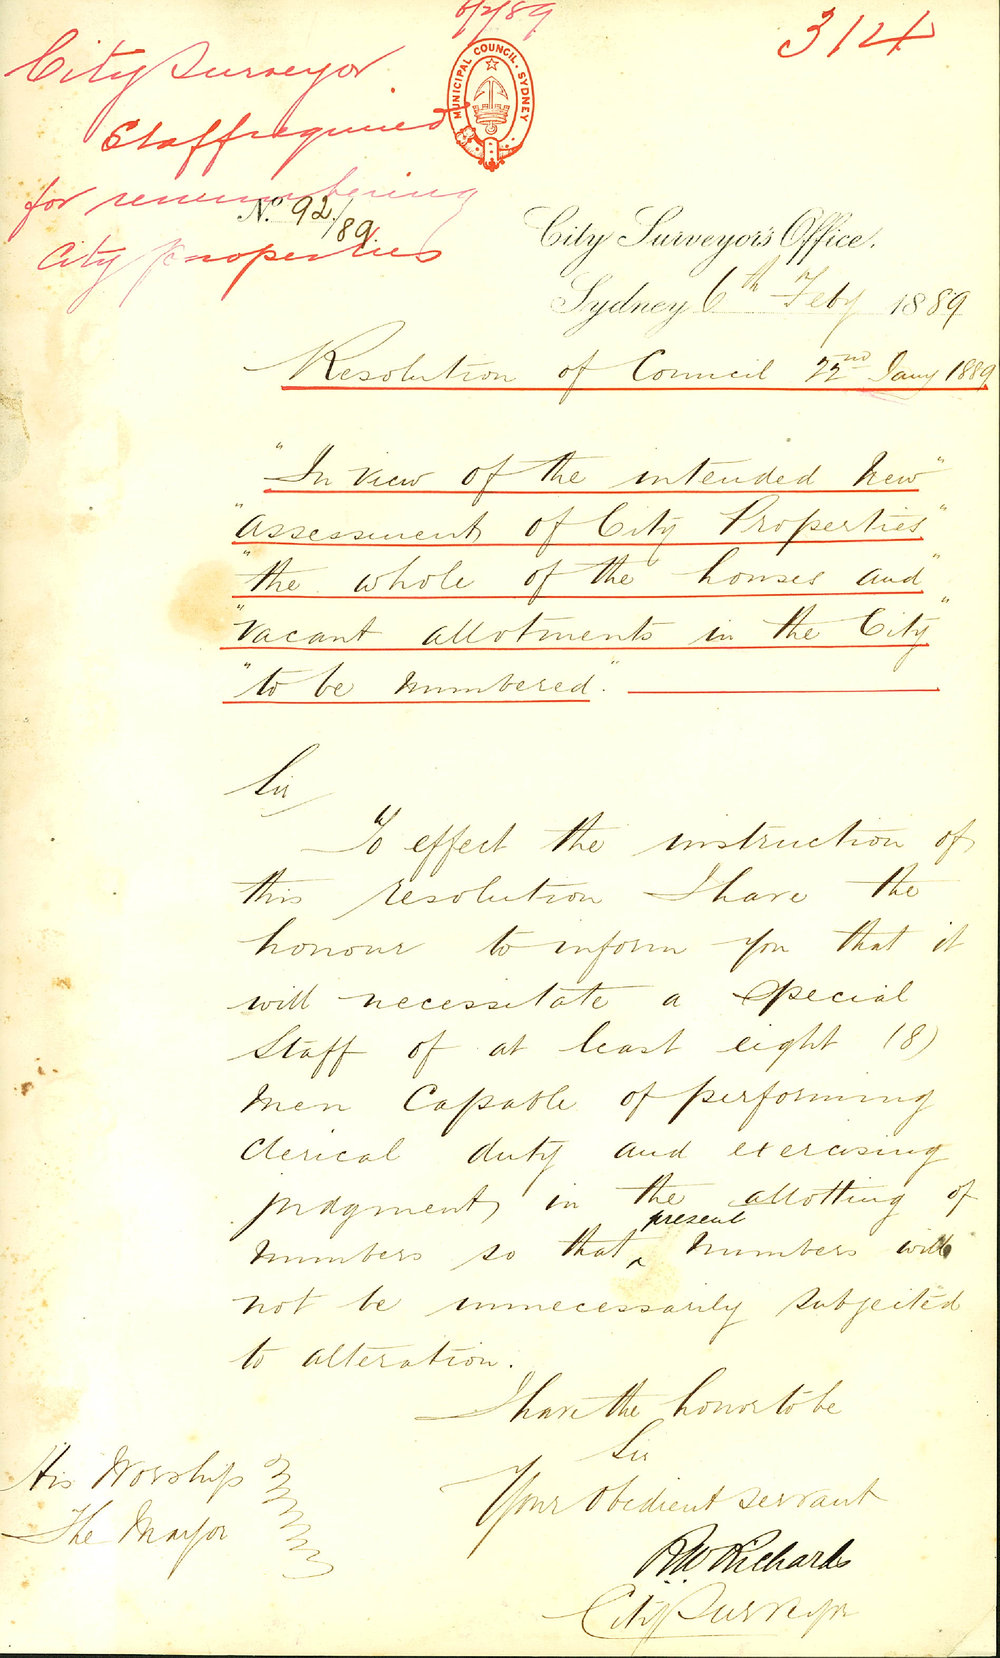 6/2/89
314
City Surveyor
Staff required
for renumbering
City properties
MUNICIPAL COUNCIL. SYDNEY
No. 92/89
City Surveyor's Office,
Sydney 6th Feby 1889
Resolution of Council 22nd Jany 1889
"In view of the intended New"
"assessment of City Properties"
"the whole of the houses and"
"vacant allotments in the City"
"to be numbered."
Sir
To effect the instruction of
this resolution I have the
honour to inform you that it
will necessitate a special
Staff of at least eight (8)
men capable of performing
clerical duty and exercising
judgment in the allotting of
numbers so that present numbers will
not be unnecessarily subjected
to alteration.
I have the honor to be
Sir
Your obedient servant
RW Richards
City Surveyor
His Worship
The Mayor